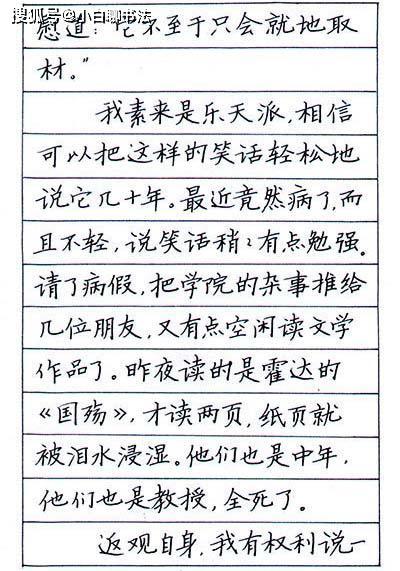 搜狐号@小白聊书法
慰道：“它不至于只会就地取
材。”
我素来是乐天派，相信
可以把这样的笑话轻松地
说它几十年。最近竟然病了，而
且不轻，说笑话稍々有点勉强。
请了病假，把学院的杂事推给
几位朋友，又有点空闲读文学
作品了。昨夜读的是霍达的
《国殇》，才读两页，纸页就
被泪水浸湿。他们也是中年，
他们也是教授，全死了。
返观自身，我有权利说一